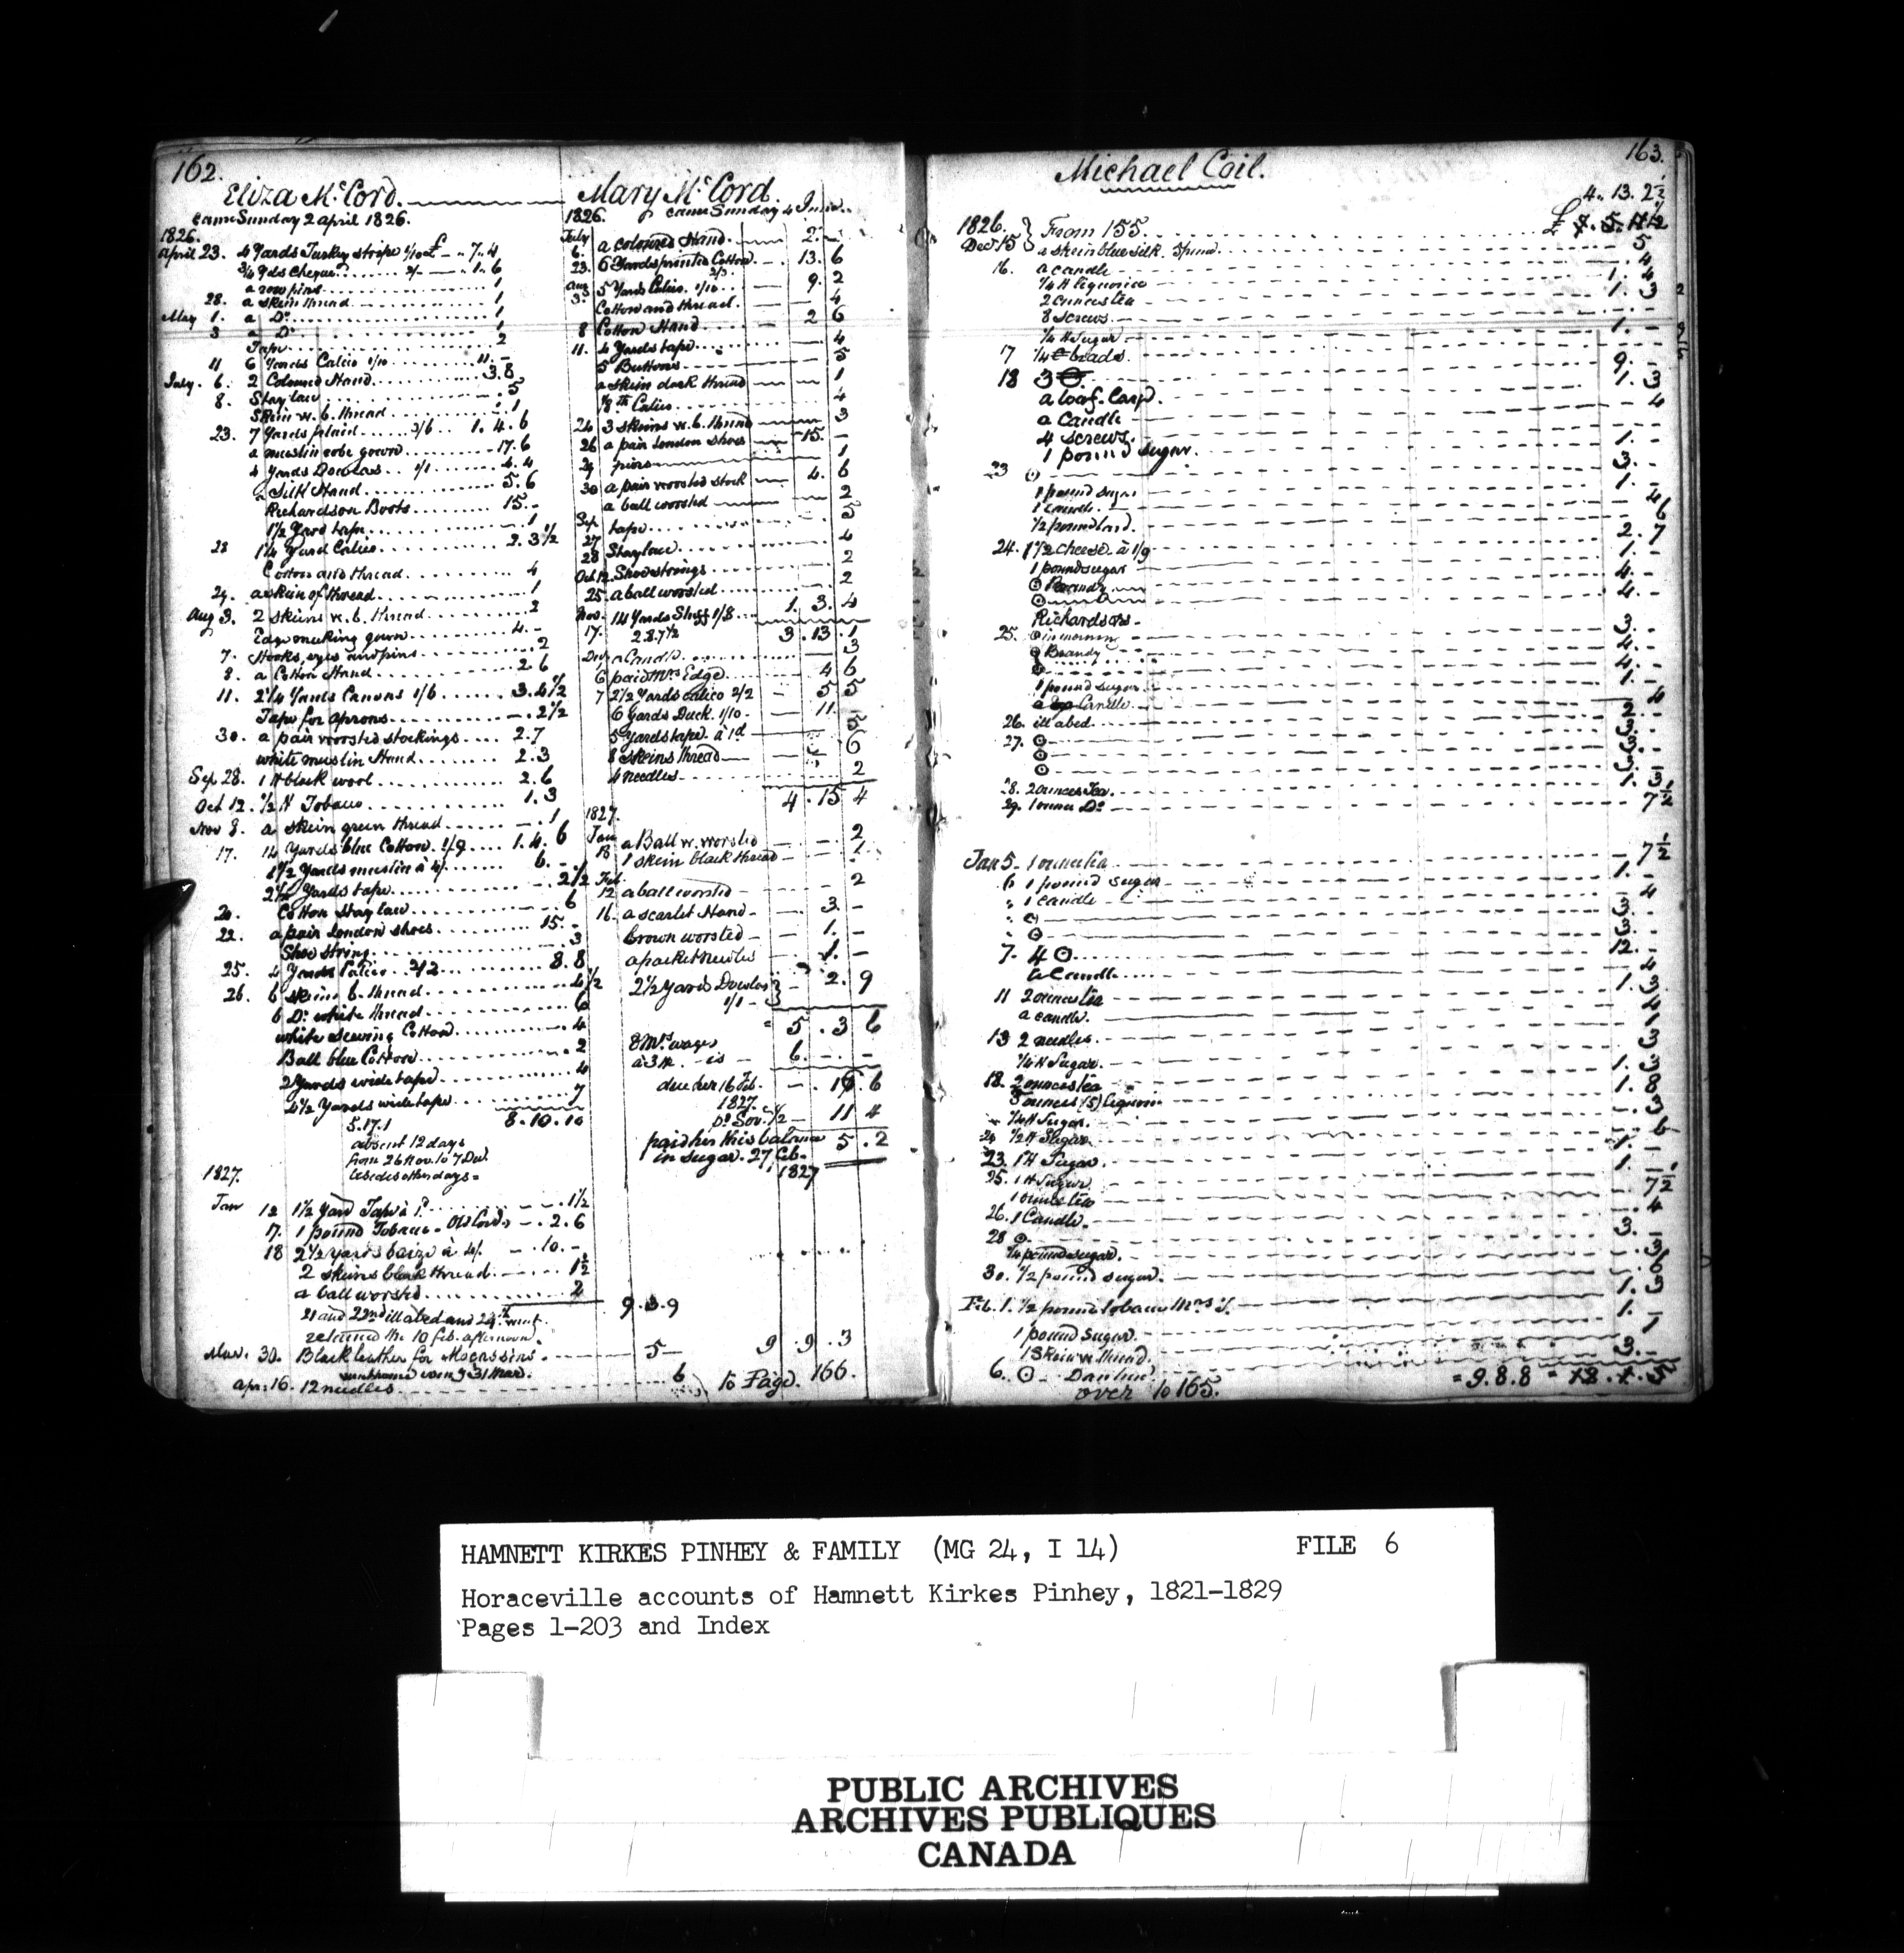 162.
Eliza McCord.
came Sunday 2 april 1826.
1826.
April 23. 4 Yards Turkey stripe 1/10 £ - .. 7. 4
3/4 Yds Chequr 2/- 1. 6
a row pins 1
28. a skein thread 1
May 1. a Do 1
3 a Do 1
Tape 2
11 6 Yards Calico 1/10 11. -
July. 6. 2 Coloured Hand. 3. 8
8. Stay lace 5
Skein w. b. thread 1
23. 7 Yards plaid 3/6 1. 4. 6
a muslin robe gown 17. 6
4 Yards Dowlas 1/1 4. 4
a Silk Hand. 5. 6
Richardson Boots 15. -
1 1/2 Yard tape 1
28 1 1/4 Yard Calico 2. 3 1/2
Cotton and thread 4
29. a skein of thread 1
Aug 3. 2 skeins w. b. thread 2
Edge making gown 4. -
7. Hooks, eyes and pins 2
8. a Cotton Hand 2 6
11. 2 1/4 Yards Canvas 1/6 3. 4 1/2
Tape for aprons 2 1/2
30. a pair worsted stockings 2. 7
white muslin Hand 2. 3
Sep 28. 1 H black wool 2. 6
Oct 12. 1/2 H Tobacco 1. 3
Nov 8. a skein green thread 1
17. 14 Yards blue Cotton 1/9 1. 4. 6
1 1/2 Yards muslin à 4/. 6. -
2 1/2 Yards tape 2 1/2
20. Cotton Stay lace 6
22. a pair London shoes 15. -
Shoe string 3
25. 4 Yards Calico 2/2 8. 8
26. 6 skeins b. thread 4 1/2
6 Do white thread 6
white sewing Cotton 4
Ball blue Cotton 2
2 Yards wide tape 4
4 1/2 Yards wide tape 7
5. 17. 1 8. 10. 10
absent 12 days
from 26 Nov. to 7 Dec.
besides other days =
1827.
Jan 12 1 1/2 Yard Tape à 1d 1 1/2
17. 1 pound Tobacco - Old Cord 2. 6
18 2 1/2 yards baize à 4/. - . 10. -
2 skeins black thread 1 1/2
a ball worsted 2
21 and 22nd ill abed and 24th went 9. 3. 9
returned the 10 feb. afternoon.
Mar. 30. Black leather for Mocassins. 5 - 9 9. 3
apr. 16. 12 needles 6
to Page. 166.
Mary McCord.
1826. came Sunday 4 June
July 6. a coloured Hand. 2. -
23. 6 Yards printed Cotton 2/3 13. 6
Aug 3 5 Yards Calico. 1/10 9. 2
Cotton and thread. 4
8 Cotton Hand 2 6
11. 4 Yards tape 4
5 Buttons 5
a skein dark thread 1
1/8th Calico 4
24 3 skeins w. b. thread 3
26 a pair London shoes 15. -
29 pins 1
30 a pair worsted stock 4. 6
a ball worsted 2
Sep tape 5
27
28 Stay lace 4
Oct 12. Shoe strings 2
25. a ball worsted 2
Nov. 17. 14 Yards Stuff 1/8 1. 3. 4
2. 8. 7 1/2 3. 13. 1
Decr a Candle 3
6 paid Mrs Edge 4 6
7 2 1/2 Yards calico 2/2 5 5
6 Yards Duck. 1/10 11. -
5 Yards tape. à 1d 5
8 skeins thread 6
4 needles 2
4. 15 4
1827.
Jan 18 a Ball w. worsted 2
1 skein black thread 1
Feb 12 a ball worsted 2
16. a scarlet Hand 3. -
brown worsted 1. -
a packet needles 1. -
2 1/2 Yards Dowlas 1/1 2. 9
5. 3 6
8 Mos. wages
à 3/4. - is - 6. - -
due her 16 Feb. 1827 - . 16. 6
Do Sov. 1/2 - 11 4
paid her this balance 5. 2
in sugar. 27 Feb. 1827
163.
Michael Coil.
4. 13. 2 1/2
1826. Decr 15 From 155 £
a skein blue silk. 5
16. a candle 4
1/4 H liquorice 1. 4
2 ounces tea 1. 3
8 screws
1/4 H Sugar
17 1/4 brads.
18 3 ⊙ 9.
a loaf. 1. 3
a Candle 4
4 screws.
1 pound sugar. 1.
23 ⊙ 3.
1 pound sugar 1.
1 candle 4
1/2 pound lard. 6
24. 1 1/2 cheese. à 1/9 2. 7
1 pound sugar 1.
⊙ Brandy 4.
⊙ 4.
Richardson -
25. ⊙ in morning 3.
⊙ Brandy
1 pound sugar 1.
a Candle 4
26. ill abed
27. ⊙ 3
⊙ 3
⊙ 3
28. 2 ounces Tea. 1. 3
29. 1 ounce Do 7 1/2
Jan 5. 1 ounce tea 7 1/2
6 1 pound sugar 1.
" 1 candle 4
" ⊙ 3
" ⊙ 3
7. 4 ⊙ 12
a Candle 4
11 2 ounces tea 1. 3
a candle.
13 2 needles.
1/4 H Sugar. 3
18. 2 ounces tea 1. 3
5 ounces (5) liquorice 1. 8
1/4 H Sugar. 3
24 1/2 H Sugar 6
23. 1 H Sugar. 1.
25. 1 H Sugar 1.
1 ounce tea 7 1/2
26. 1 Candle. 4
28 ⊙ 3.
1/4 pound sugar. 3
30. 1/2 pound sugar. 6
Feb. 1. 1/2 pound tobacco 1. 3
1 pound sugar. 1.
1 Skein w thread. 1
6. ⊙ 3. -
= 9. 8. 8 =
over to 165.
HAMNETT KIRKES PINHEY & FAMILY (MG 24, I 14) FILE 6
Horaceville accounts of Hamnett Kirkes Pinhey, 1821-1829
Pages 1-203 and Index
PUBLIC ARCHIVES
ARCHIVES PUBLIQUES
CANADA